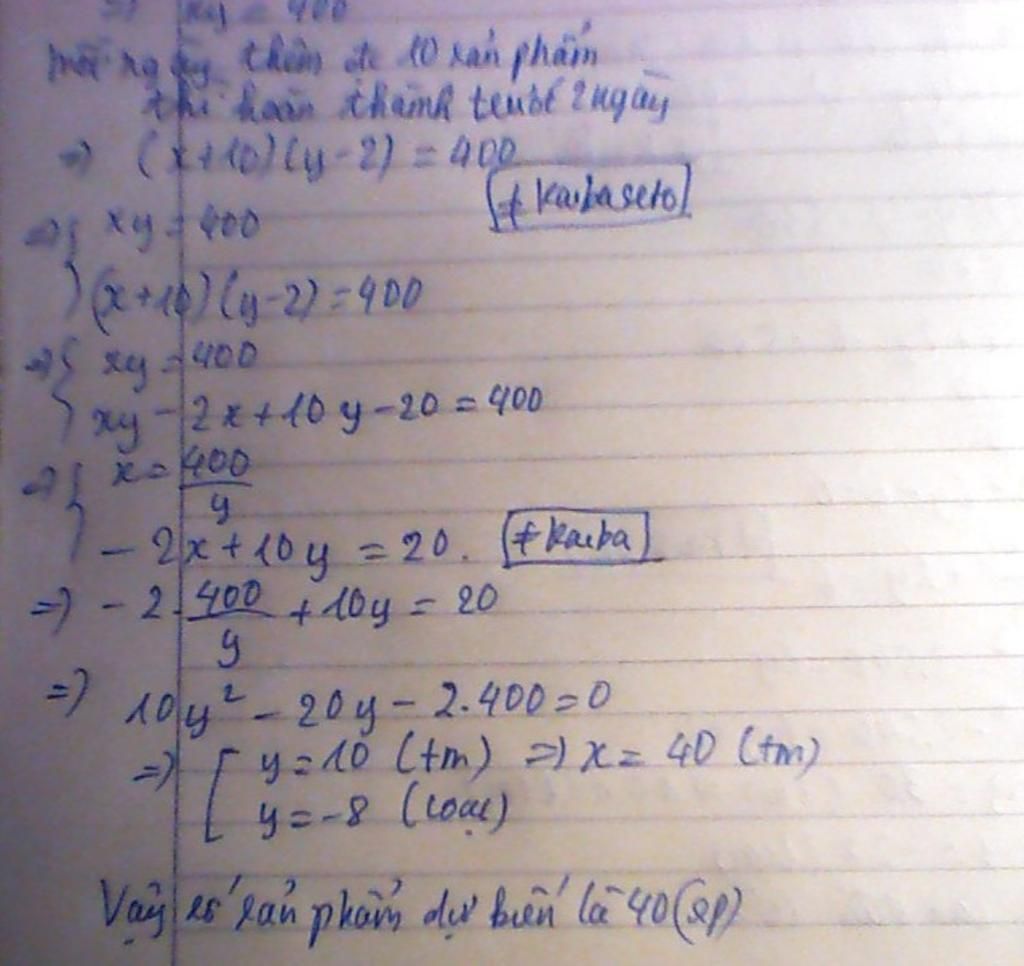 => xy = 400
mỗi ngày thêm đc 10 sản phẩm
thì hoàn thành trước 2 ngày
=> (x+10)(y-2) = 400
#kaibaseto
=> { xy = 400
(x+10)(y-2) = 400
=> { xy = 400
xy - 2x + 10y - 20 = 400
=> { x = 400/y
- 2x + 10y = 20.
#kaiba
=> - 2 . 400/y + 10y = 20
=> 10y² - 20y - 2.400 = 0
=> [ y = 10 (tm) => x = 40 (tm)
y = -8 (loại)
Vậy số sản phẩm dự kiến là 40 (sp)